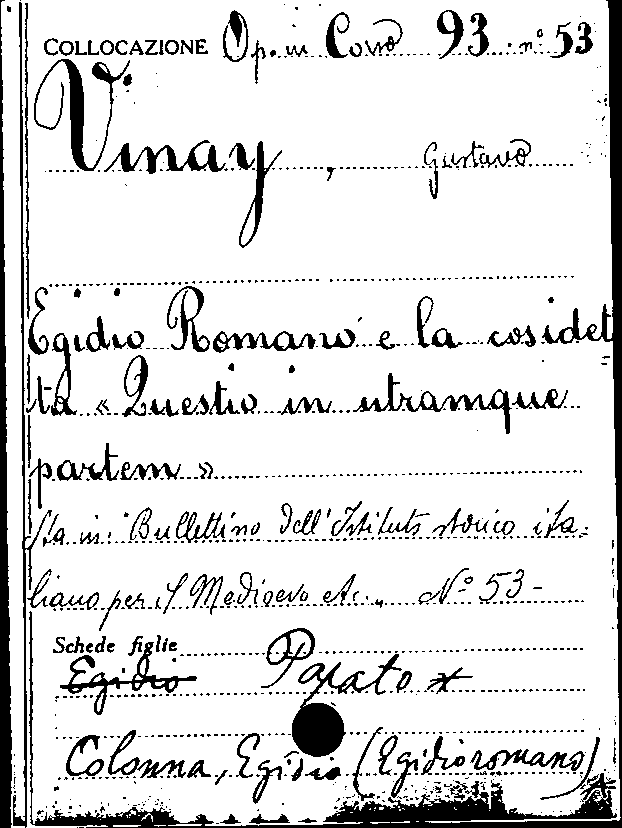 COLLOCAZIONE Op. in Corso 93. nº 53
Vinay, Gustavo
Egidio Romano e la cosidet=
ta « Questio in utramque
partem »
Sta in: "Bullettino dell'Istituto storico ita=
liano per il Medioevo etc.„ Nº 53-
Schede figlie
Egidio Papato *
Colonna, Egidio (Egidio romano)